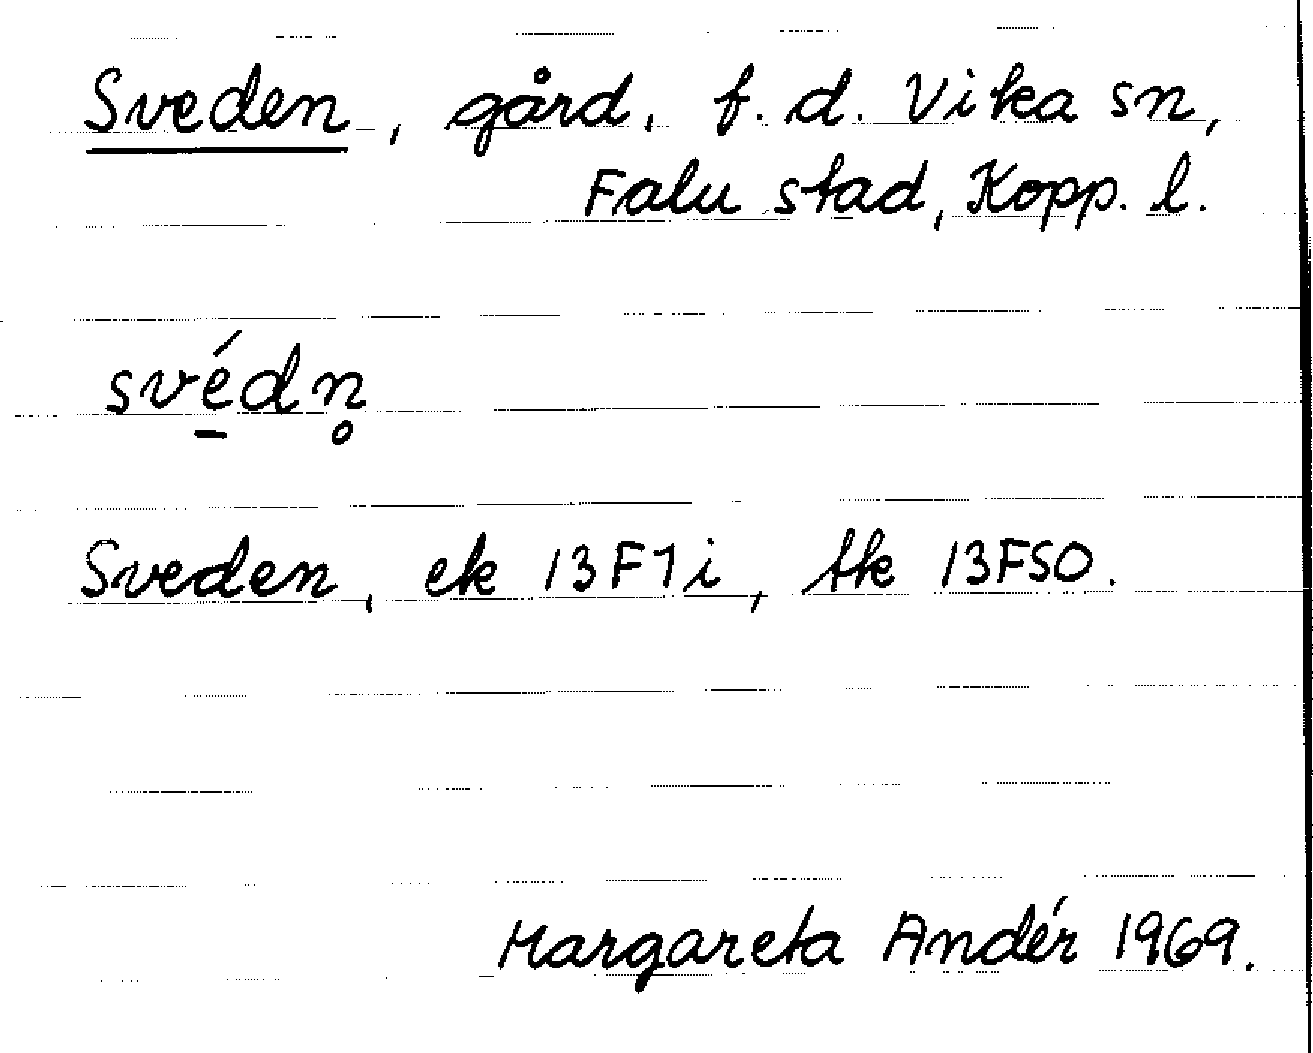 Sveden, gård, f. d. Vika sn,
Falu stad, Kopp. l.
své̱dn̥
Sveden, ek 13F1i, tk 13FSO.
Margareta Andér 1969.